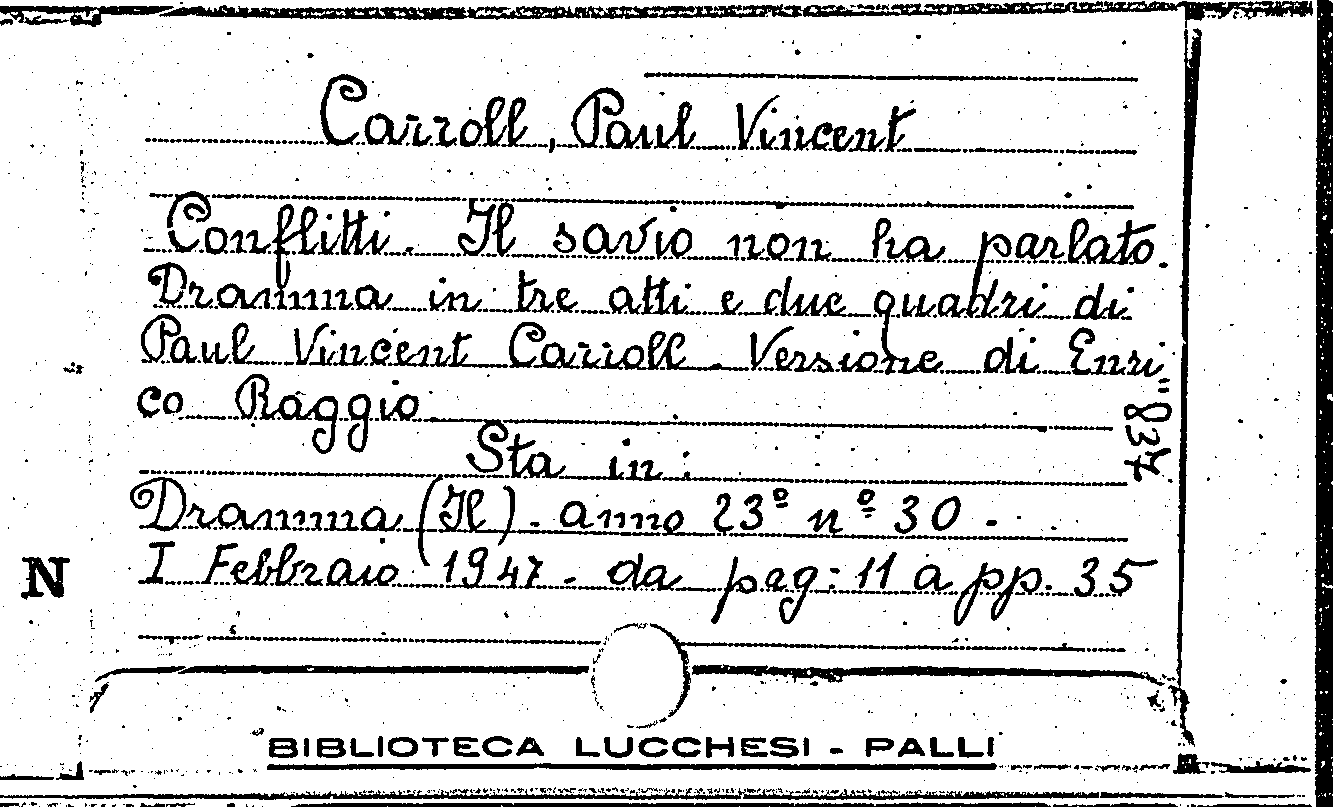 Carroll, Paul Vincent
Conflitti. Il savio non ha parlato.
Dramma in tre atti e due quadri di
Paul Vincent Carroll. Versione di Enri
co Raggio
Sta in:
Dramma (Il). anno 23º nº 30.
I Febbraio 1947. da pag: 11 a pp. 35
N
BIBLIOTECA LUCCHESI - PALLI